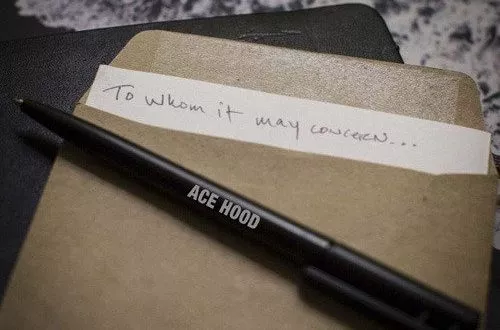 To whom it may concern...
ACE HOOD